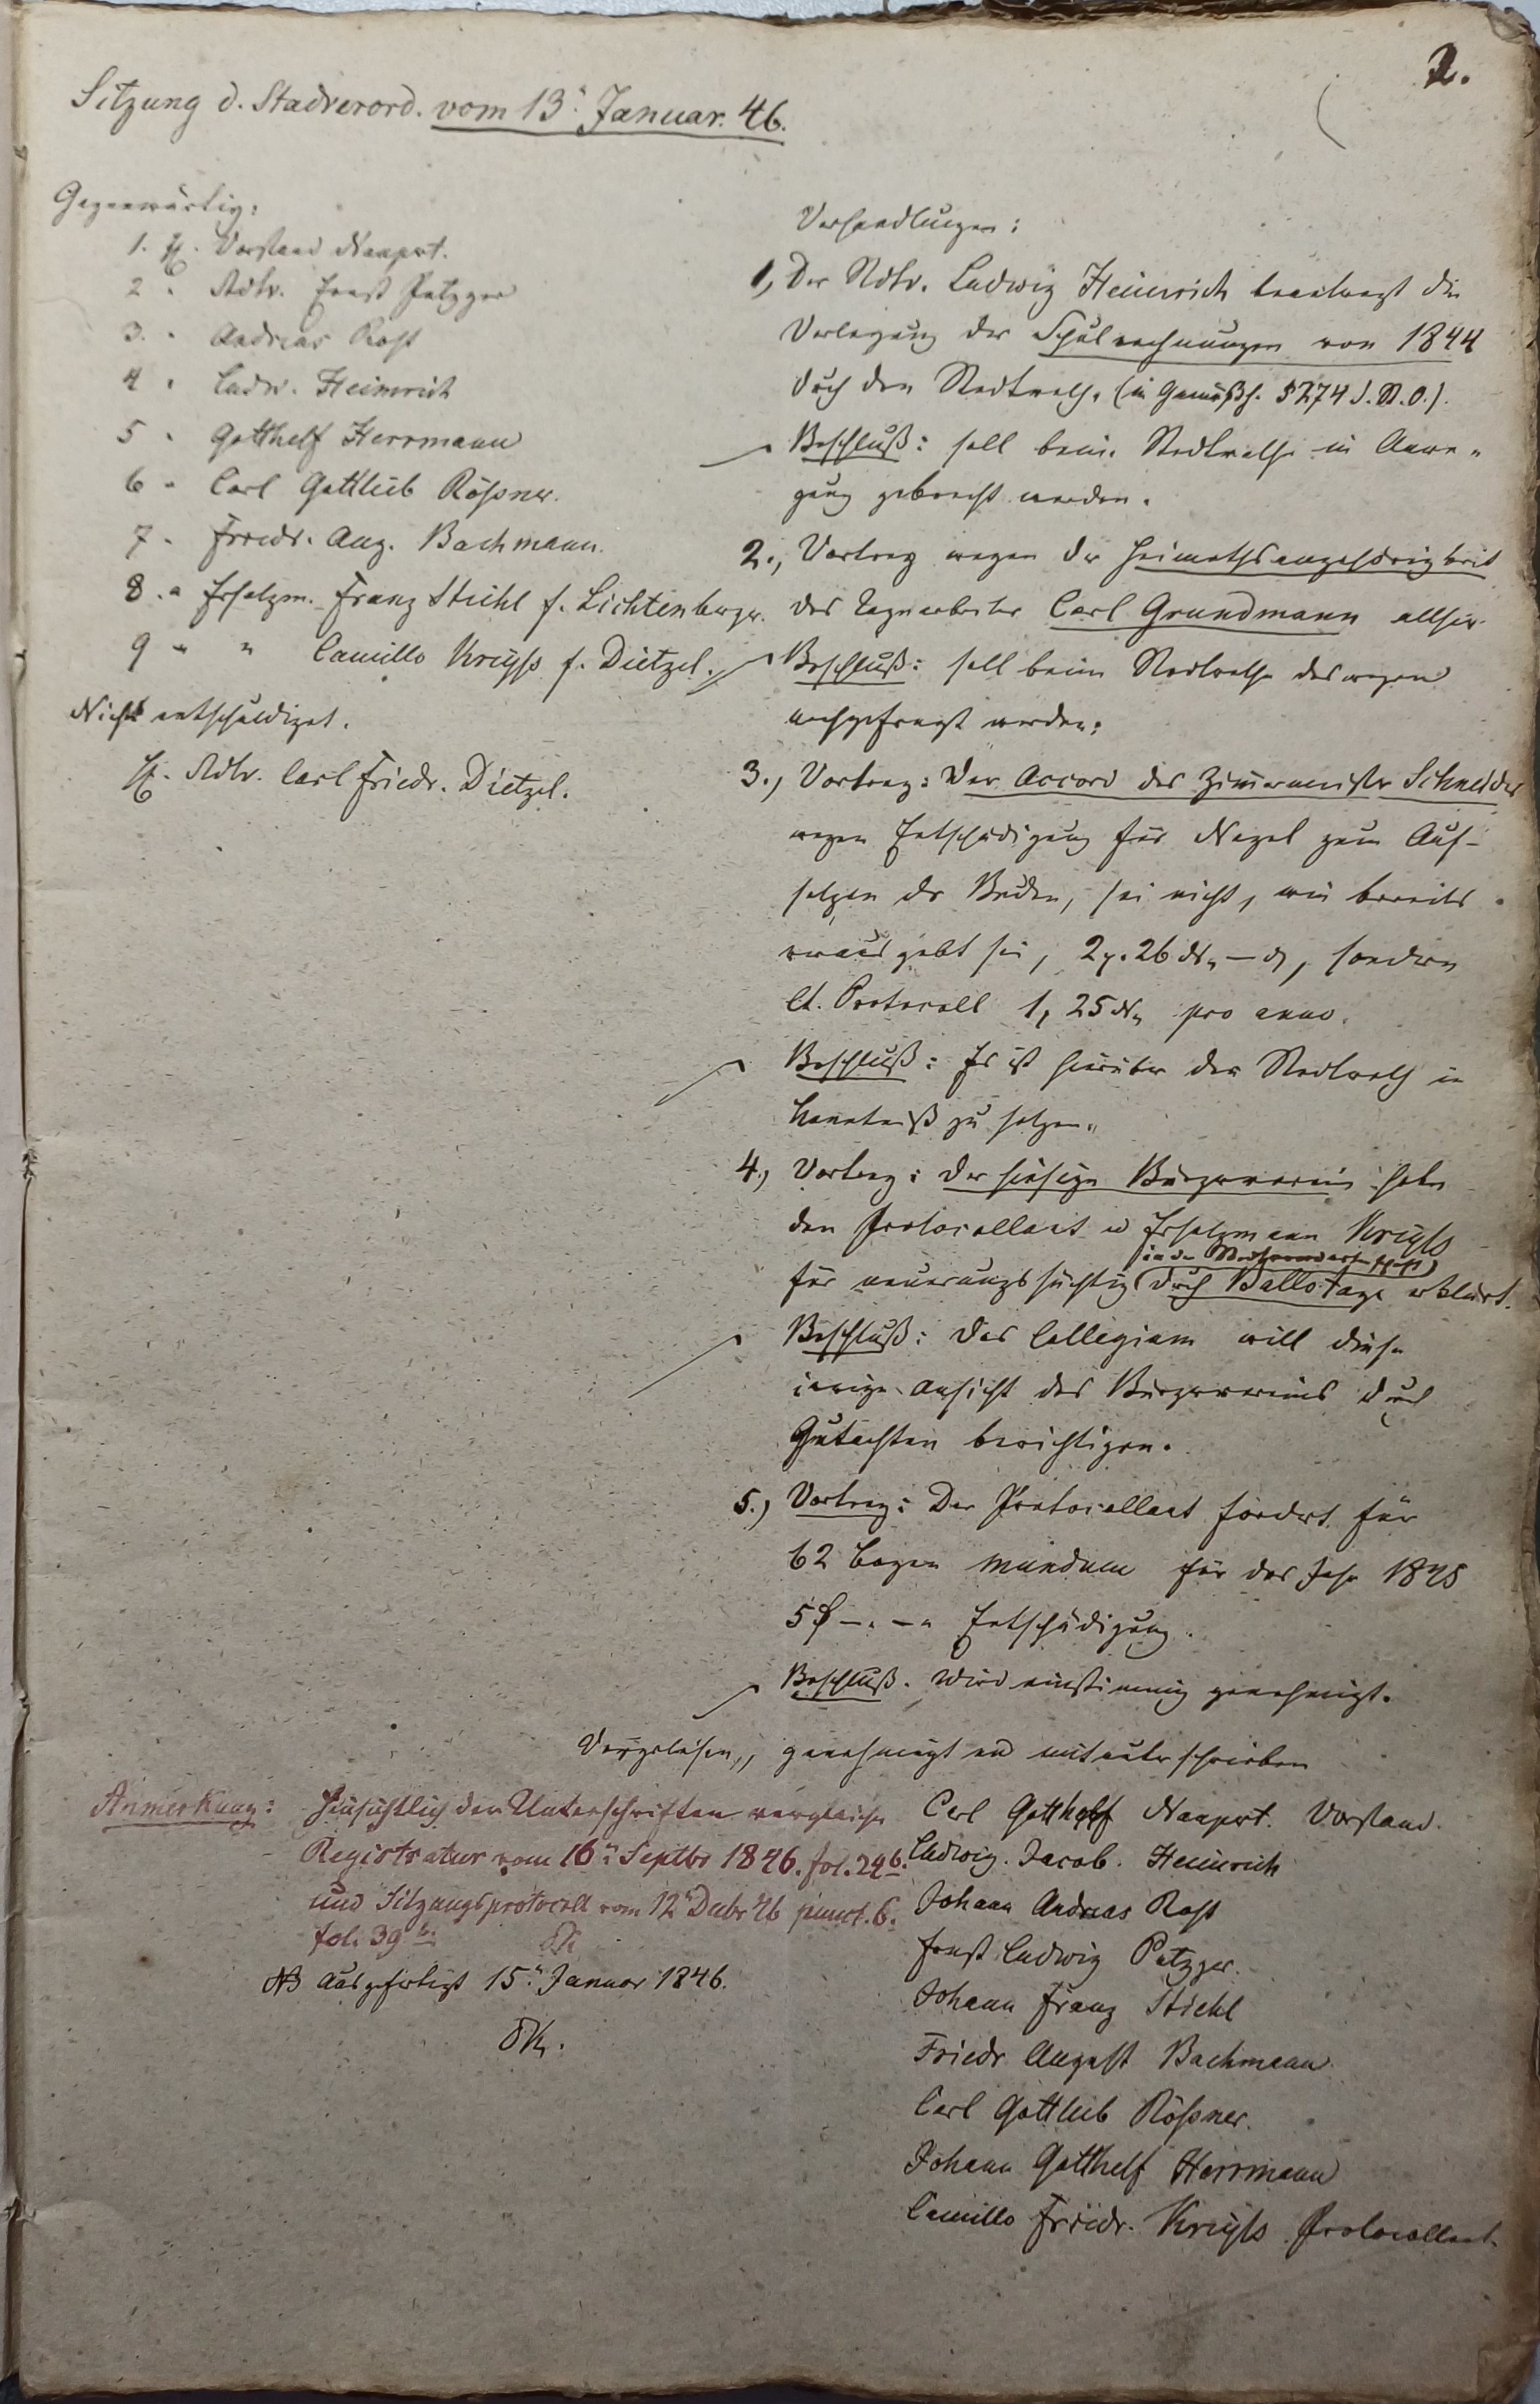 2.
Sitzung d. Stadverord. vom 13. Januar. 46.
Gegenwärtig:
1. H. Vorstand Naupert.
2 " Stdtv. Ernst Patzger
3. " Andreas Rost
4 " Ludw. Heinrich
5 " Gotthelf Herrmann
6 " Carl Gottlieb Rößner.
7 " Friedr. Aug. Bachmann.
8 . " Ersatzm. Franz Stiehl f. Lichtenberger.
9 " " Camillo Kreyß f. Dietzel.
Nicht entschuldiget.
H. Stdtv. Carl Friedr. Dietzel.
Verhandlungen:
1, Der Stdtv. Ludwig Heinrich beantragt die
Vorlegung der Schulrechnungen von 1844
durch den Stadtrath. (in Gemäßh. § 274 d. St. O.).
Beschluß: soll beim Stadtrathe in Anre-
gung gebracht werden.
2., Vortrag wegen der Heimathsangehörigkeit
des Tagearbeiter Carl Grundmann allhier
Beschluß: soll beim Stadtrathe deswegen
nachgefragt werden.
3., Vortrag: Der Accord des Zimmermeister Schneider
wegen Entschädigung für Nägel zum Auf-
setzen der Buden, sei nicht, wie bereits
sei, 26 sondern
lt. Protocoll 1, 25 pro anno.
Beschluß: Es ist hierüber der Stadtrath in
Kenntniß zu setzen.
4., Vortrag: der hiesige Bürgerverein habe
den Protocollant u Ersatzmann Kreyß
für neuerungssüchtig durch Ballotage erklärt.
Beschluß: Das Collegium will diese
irrige Ansicht des Bürgervereins durch
Gutachten berichtigen.
5.) Vortrag: Der Protocollant fordert für
62 Bogen mundum für das Jahr 1845
5 Entschädigung.
Beschluß. Wird einstimmig genehmigt.
Vorgelesen, genehmigt und mitunterschrieben
Carl Gotthelf Naupert. Vorstand.
Ludwig. Jacob. Heinrich
Johann Andreas Rost
Ernst Ludwig Patzger.
Johann Franz Stiehl
Friedr August Bachmann.
Carl Gottlieb Rößner.
Johann Gotthelf Herrmann
Camillo Friedr. Kreyß Protocollant.
Anmerkung: Hinsichtlich der Unterschriften vergleiche
Registratur vom 16. Septbr 1846. fol. 24b.
und Sitzungsprotocoll vom 12. Decbr 46 punct. 6.
fol. 39b.
NB Ausgefertigt 15. Januar 1846.